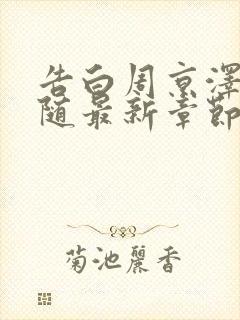 告白周京澤
随最新章節
菊池麗香